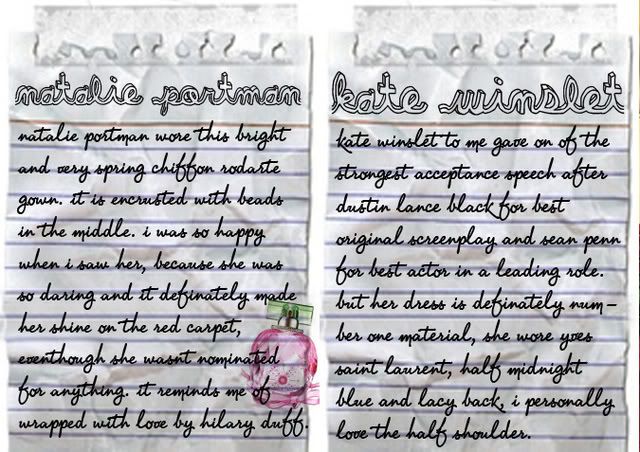 natalie portman
natalie portman wore this bright
and very spring chiffon rodarte
gown. it is encrusted with beads
in the middle. i was so happy
when i saw her, because she was
so daring and it definately made
her shine on the red carpet,
eventhough she wasnt nominated
for anything. it reminds me of
wrapped with love by hilary duff.
kate winslet
kate winslet to me gave on of the
strongest acceptance speech after
dustin lance black for best
original screenplay and sean penn
for best actor in a leading role.
but her dress is definately num-
ber one material, she wore yves
saint laurent, half midnight
blue and lacy back, i personally
love the half shoulder.